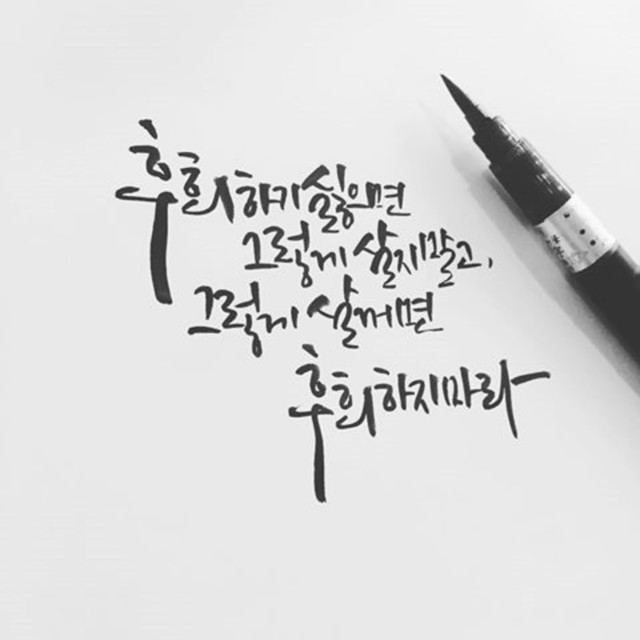 후회하기 싫으면
그렇게 살지말고,
그렇게 살꺼면
후회하지마라